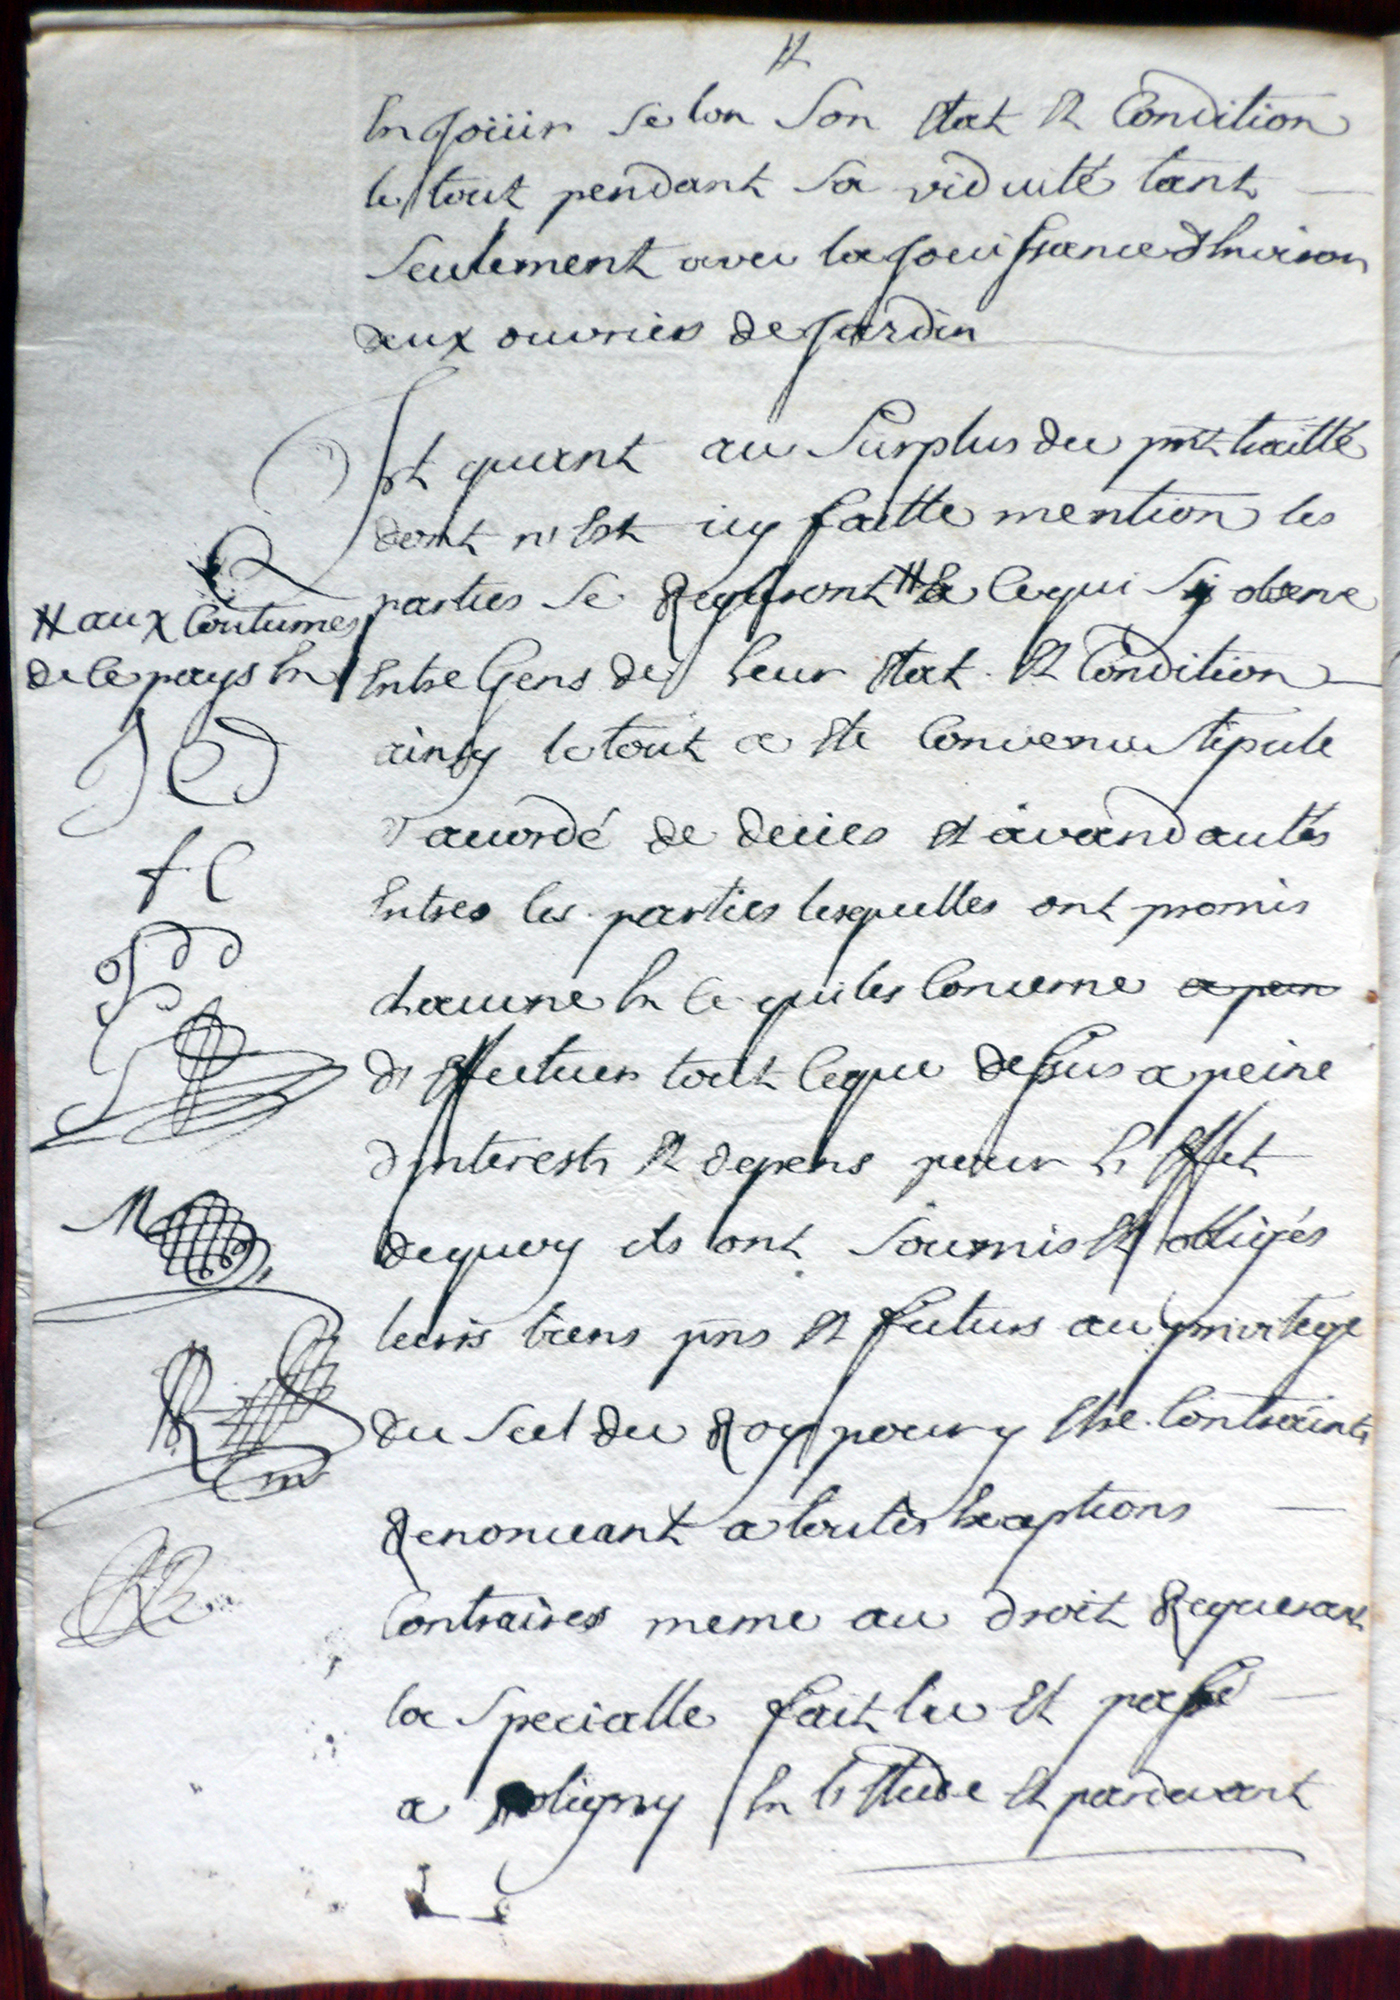 Et
En Joüir selon Son Etat Et Condition
le tout pendant Sa viduité tant
Seulement avec la Jouissance d'Environ
deux ouvriers de Jardin
Et quant au Surplus du pnt traitté
dont n'Est icy faitte mention les
parties se Regleront # a Ce qui Sy observe
# aux Coutumes
de Ce pays En
Entre Gens de leur Etat Et Condition
ainsy le tout a Ete Convenu Stipule
accordé de et avand
Entres les parties lesquelles ont promis
chacune En Ce qui les Concerne a pein
d'Effectuer tout Ce que dessus a peine
d'interests Et depens pour l'Effet
de quoy ils ont Soumis Et obligés
leurs biens pns Et futurs au privilege
du Scel du Roy pour y Etre Contraints
Renonceant a toutes Exceptions
Contraires meme au droit Requerant
la Specialle fait lu Et passé
a poligny En l'Etude Et pardevant